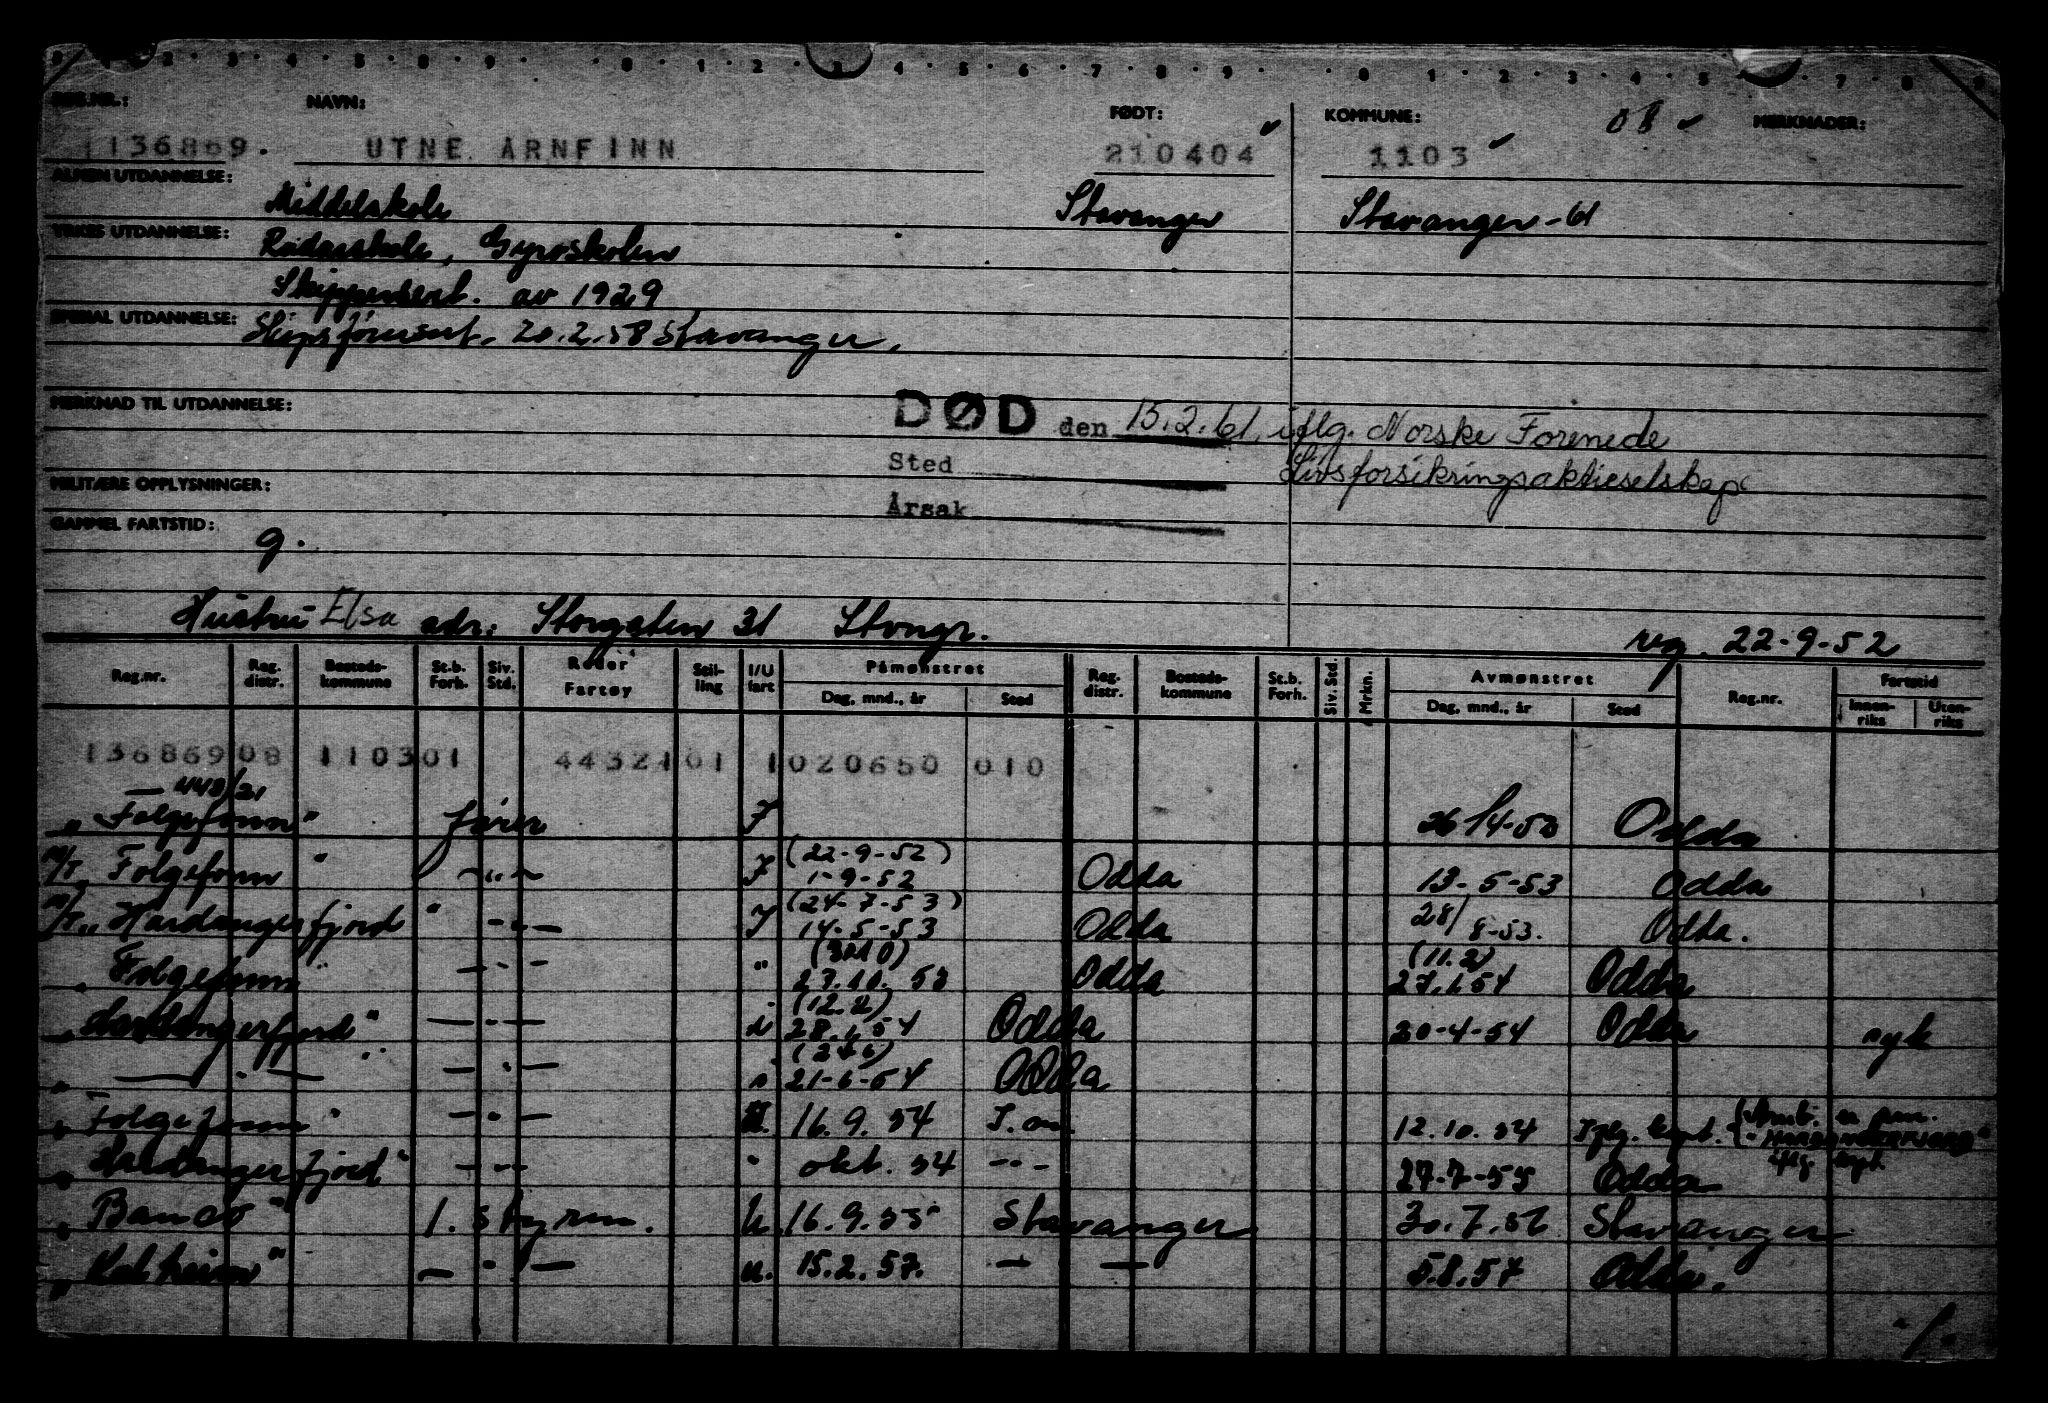 REG.NR.: NAVN: FØDT: KOMMUNE: 08 ✓ MERKNADER:
136869. UTNE ARNFINN 210404 ✓ 1103 ✓
ALMEN UTDANNELSE: Middelskole Stavanger Stavanger - 61
YRKES UTDANNELSE: Radarskole, Gyroskolen
Skippersert. av 1929
SPESIAL UTDANNELSE: Skipsførersert. 20.2.58 Stavanger.
MERKNAD TIL UTDANNELSE: DØD den 15.2.61. iflg. Norske Forenede
Sted Livsforsikringsaktieselskap
MILITÆRE OPPLYSNINGER: Årsak
GAMMEL FARTSTID: 9.
Hustru Elsa adr: Storgaten 31 Stvngr. reg. 22-9-52
Reg.nr. Reg. distr. Bosteds-kommune St.b. Forh. Siv. Std. Reder Fartøy Stil-ling I/U fart Påmønstret Dag, mnd., år Sted Reg. distr. Bosteds-kommune St.b. Forh. Siv. Std. Mrkn. Avmønstret Dag, mnd., år Sted Reg.nr. Fartstid Innen-riks Uten-riks
136869 08 110301 4432101 1020650 010
" Folgefonn " fører I 26/4-50 Odda
M/T. Folgefonn " - " - I (22-9-52) 1-9-52 Odda 13-5-53 Odda
M/T. " Hardangerfjord " - " - I (24-7-53) 14-5-53 Odda 28/8-53. Odda.
" Folgefonn " - " - " 27.10.53 Odda (11.2) 27.1.54 Odda
" Hardangerfjord " - " - (12.2) 28.1.54 Odda 20-4-54 Odda syk
" - " - - " - 21-6-54 Odda
" Folgefonn " - " - 16.9.54 12.10.54
" Hardangerfjord " - " - " okt. 54 - " - 27-7-55 Odda
" Banco " 1. styrm. u. 16.9.55 Stavanger 30.7.56 Stavanger
" - " - u. 15.2.57. - " - 5.8.57 Odda.